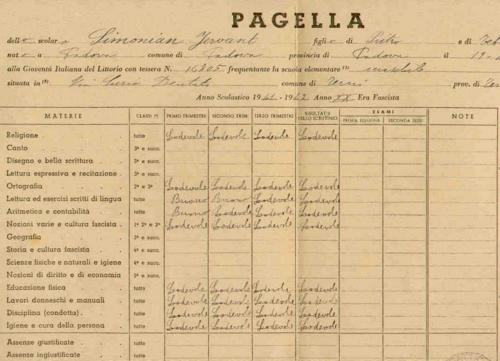 PAGELLA
dell scolar Simonian Jervant figli di Pietro e di
nat a Padova comune di Padova provincia di Padova il 19
alla Gioventù Italiana del Littorio con tessera N. frequentante la scuola elementare (1)
situata in (2) Via Lucio Dentato comune di prov. di
Anno Scolastico 1941 - 1942 Anno XX Era Fascista
MATERIE CLASSI (*) PRIMO TRIMESTRE SECONDO TRIM. TERZO TRIMESTRE RISULTATO DELLO SCRUTINIO ESAMI PRIMA SESSIONE SECONDA SESS. NOTE
Religione tutte Lodevole Lodevole Lodevole Lodevole
Canto 3ª e succ.
Disegno e bella scrittura 3ª e succ.
Lettura espressiva e recitazione 3ª e succ.
Ortografia 2ª e 3ª Lodevole Lodevole Lodevole Lodevole
Lettura ed esercizi scritti di lingua tutte Buono Buono Lodevole Lodevole
Aritmetica e contabilità tutte Buono Lodevole Lodevole Lodevole
Nozioni varie e cultura fascista 1ª 2ª e 3ª Lodevole Lodevole Lodevole Lodevole
Geografia e succ.
Storia e cultura fascista 4ª e succ.
Scienze fisiche e naturali e igiene 4ª e succ.
Nozioni di diritto e di economia 5ª e succ.
Educazione fisica tutte Lodevole Lodevole Lodevole Lodevole
Lavori donneschi e manuali tutte Lodevole Lodevole Lodevole Lodevole
Disciplina (condotta) tutte Lodevole Lodevole Lodevole Lodevole
Igiene e cura della persona tutte Lodevole Lodevole Lodevole Lodevole
Assenze giustificate tutte
Assenze ingiustificate tutte